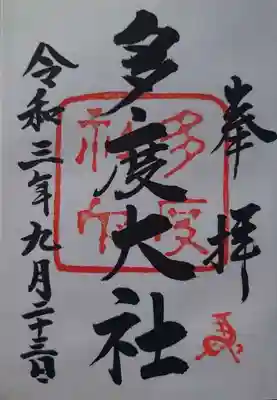 奉拝
多度大社
令和三年九月二十三日
多度